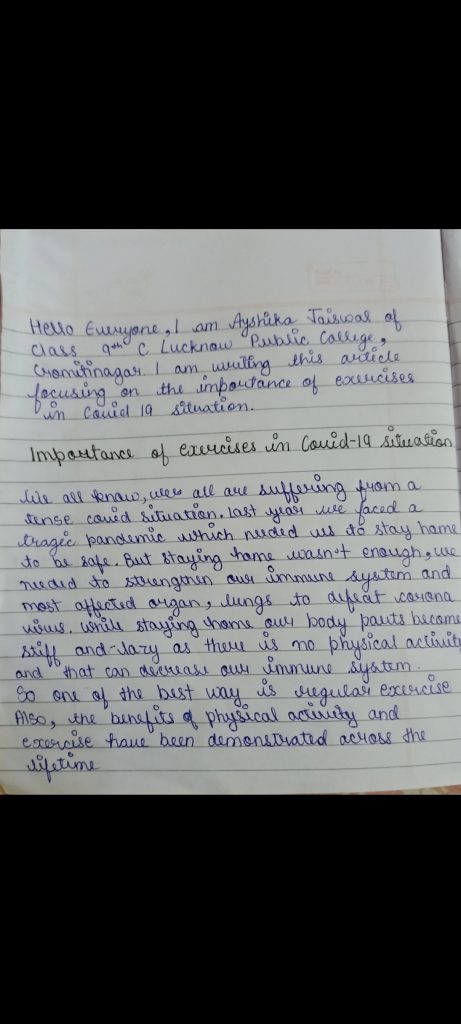 Hello Everyone, I am Ayshika Jaiswal of
class 9th C Lucknow Public College,
Gomtinagar. I am writing this article
focusing on the importance of exercises
in Covid 19 situation.
Importance of exercises in Covid-19 situation
We all know, we all are suffering from a
tense covid situation. Last year we faced a
tragic pandemic which needed us to stay home
to be safe. But staying home wasn't enough, we
needed to strengthen our immune system and
most affected organ, lungs to defeat corona
virus. While staying home our body parts became
stiff and lazy as there is no physical activity
and that can decrease our immune system.
So one of the best way is regular exercise
Also, the benefits of physical activity and
exercise have been demonstrated across the
lifetime